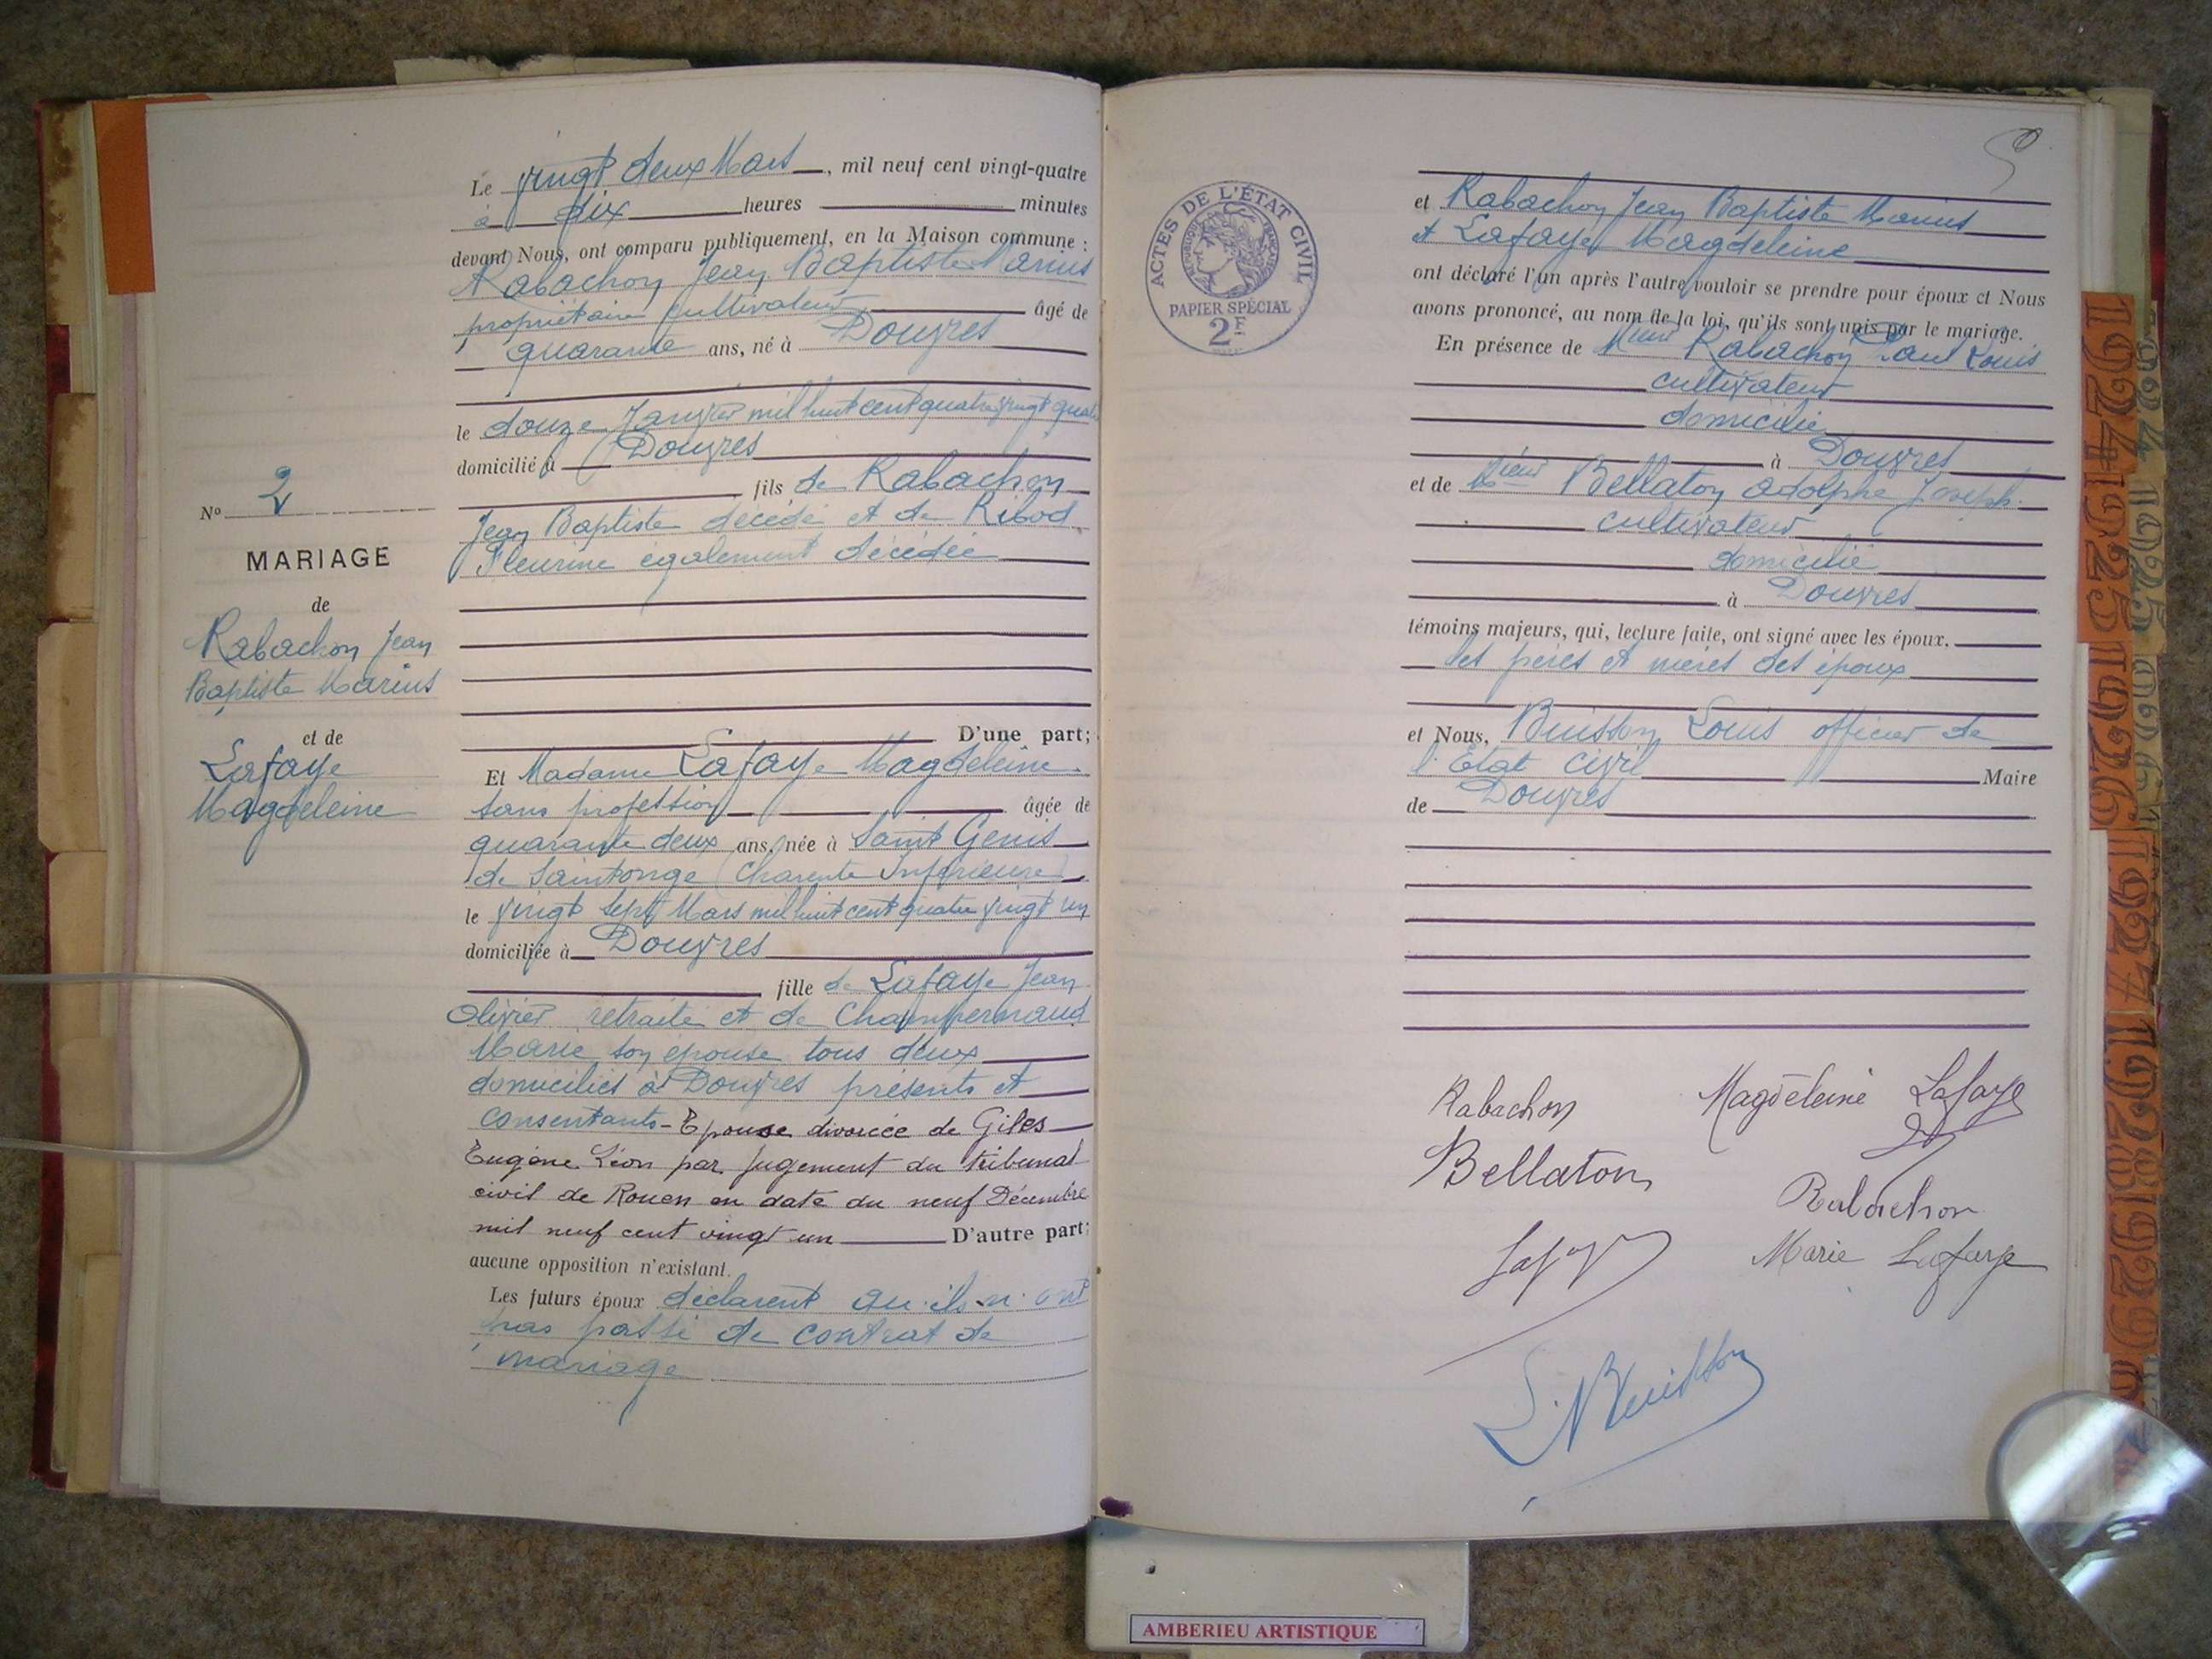 Le vingt deux Mars, mil neuf cent vingt-quatre
à dix heures minutes
devant Nous, ont comparu publiquement, en la Maison commune :
Rabachon Jean Baptiste Marius
propriétaire cultivateur âgé de
quarante ans, né à Douvres
le douze Janvier mil huit cent quatre vingt quatre
domicilié à Douvres
fils de Rabachon
Jean Baptiste décédé et de Ribod
Fleurine également décédée
No 2
MARIAGE
de
Rabachon Jean
Baptiste Marius
et de
Lafaye
Magdeleine
D'une part;
Et Madame Lafaye Magdeleine
sans profession âgée de
quarante deux ans, née à Saint Genis
de Saintonge (Charente Inférieure)
le vingt sept Mars mil huit cent quatre vingt un
domiciliée à Douvres
fille de Lafaye Jean
Olivier retraité et de Champernaud
Marie son épouse tous deux
domiciliés à Douvres présents et
consentants - Epouse divorcée de Giles
Eugène Léon par jugement du tribunal
civil de Rouen en date du neuf Décembre
mil neuf cent vingt un D'autre part;
aucune opposition n'existant.
Les futurs époux déclarent qu'ils n'ont
pas passé de contrat de
mariage
ACTES DE L'ÉTAT CIVIL
RÉPUBLIQUE FRANÇAISE
PAPIER SPÉCIAL
2F
et Rabachon Jean Baptiste Marius
et Lafaye Magdeleine
ont déclaré l'un après l'autre vouloir se prendre pour époux et Nous
avons prononcé, au nom de la loi, qu'ils sont unis par le mariage.
En présence de Mieur Rabachon Paul Louis
cultivateur
domicilié
à Douvres
et de Mieur Bellaton Adolphe Joseph
cultivateur
domicilié
à Douvres
témoins majeurs, qui, lecture faite, ont signé avec les époux.
les pères et mères des époux
et Nous, Buisson Louis officier de
l'Etat Civil Maire
de Douvres
Rabachon Magdeleine Lafaye
Bellaton
Rabachon
Lafaye
Marie Lafaye
L. Buisson
1924 1925 1926 1927 1928 1929
AMBERIEU ARTISTIQUE